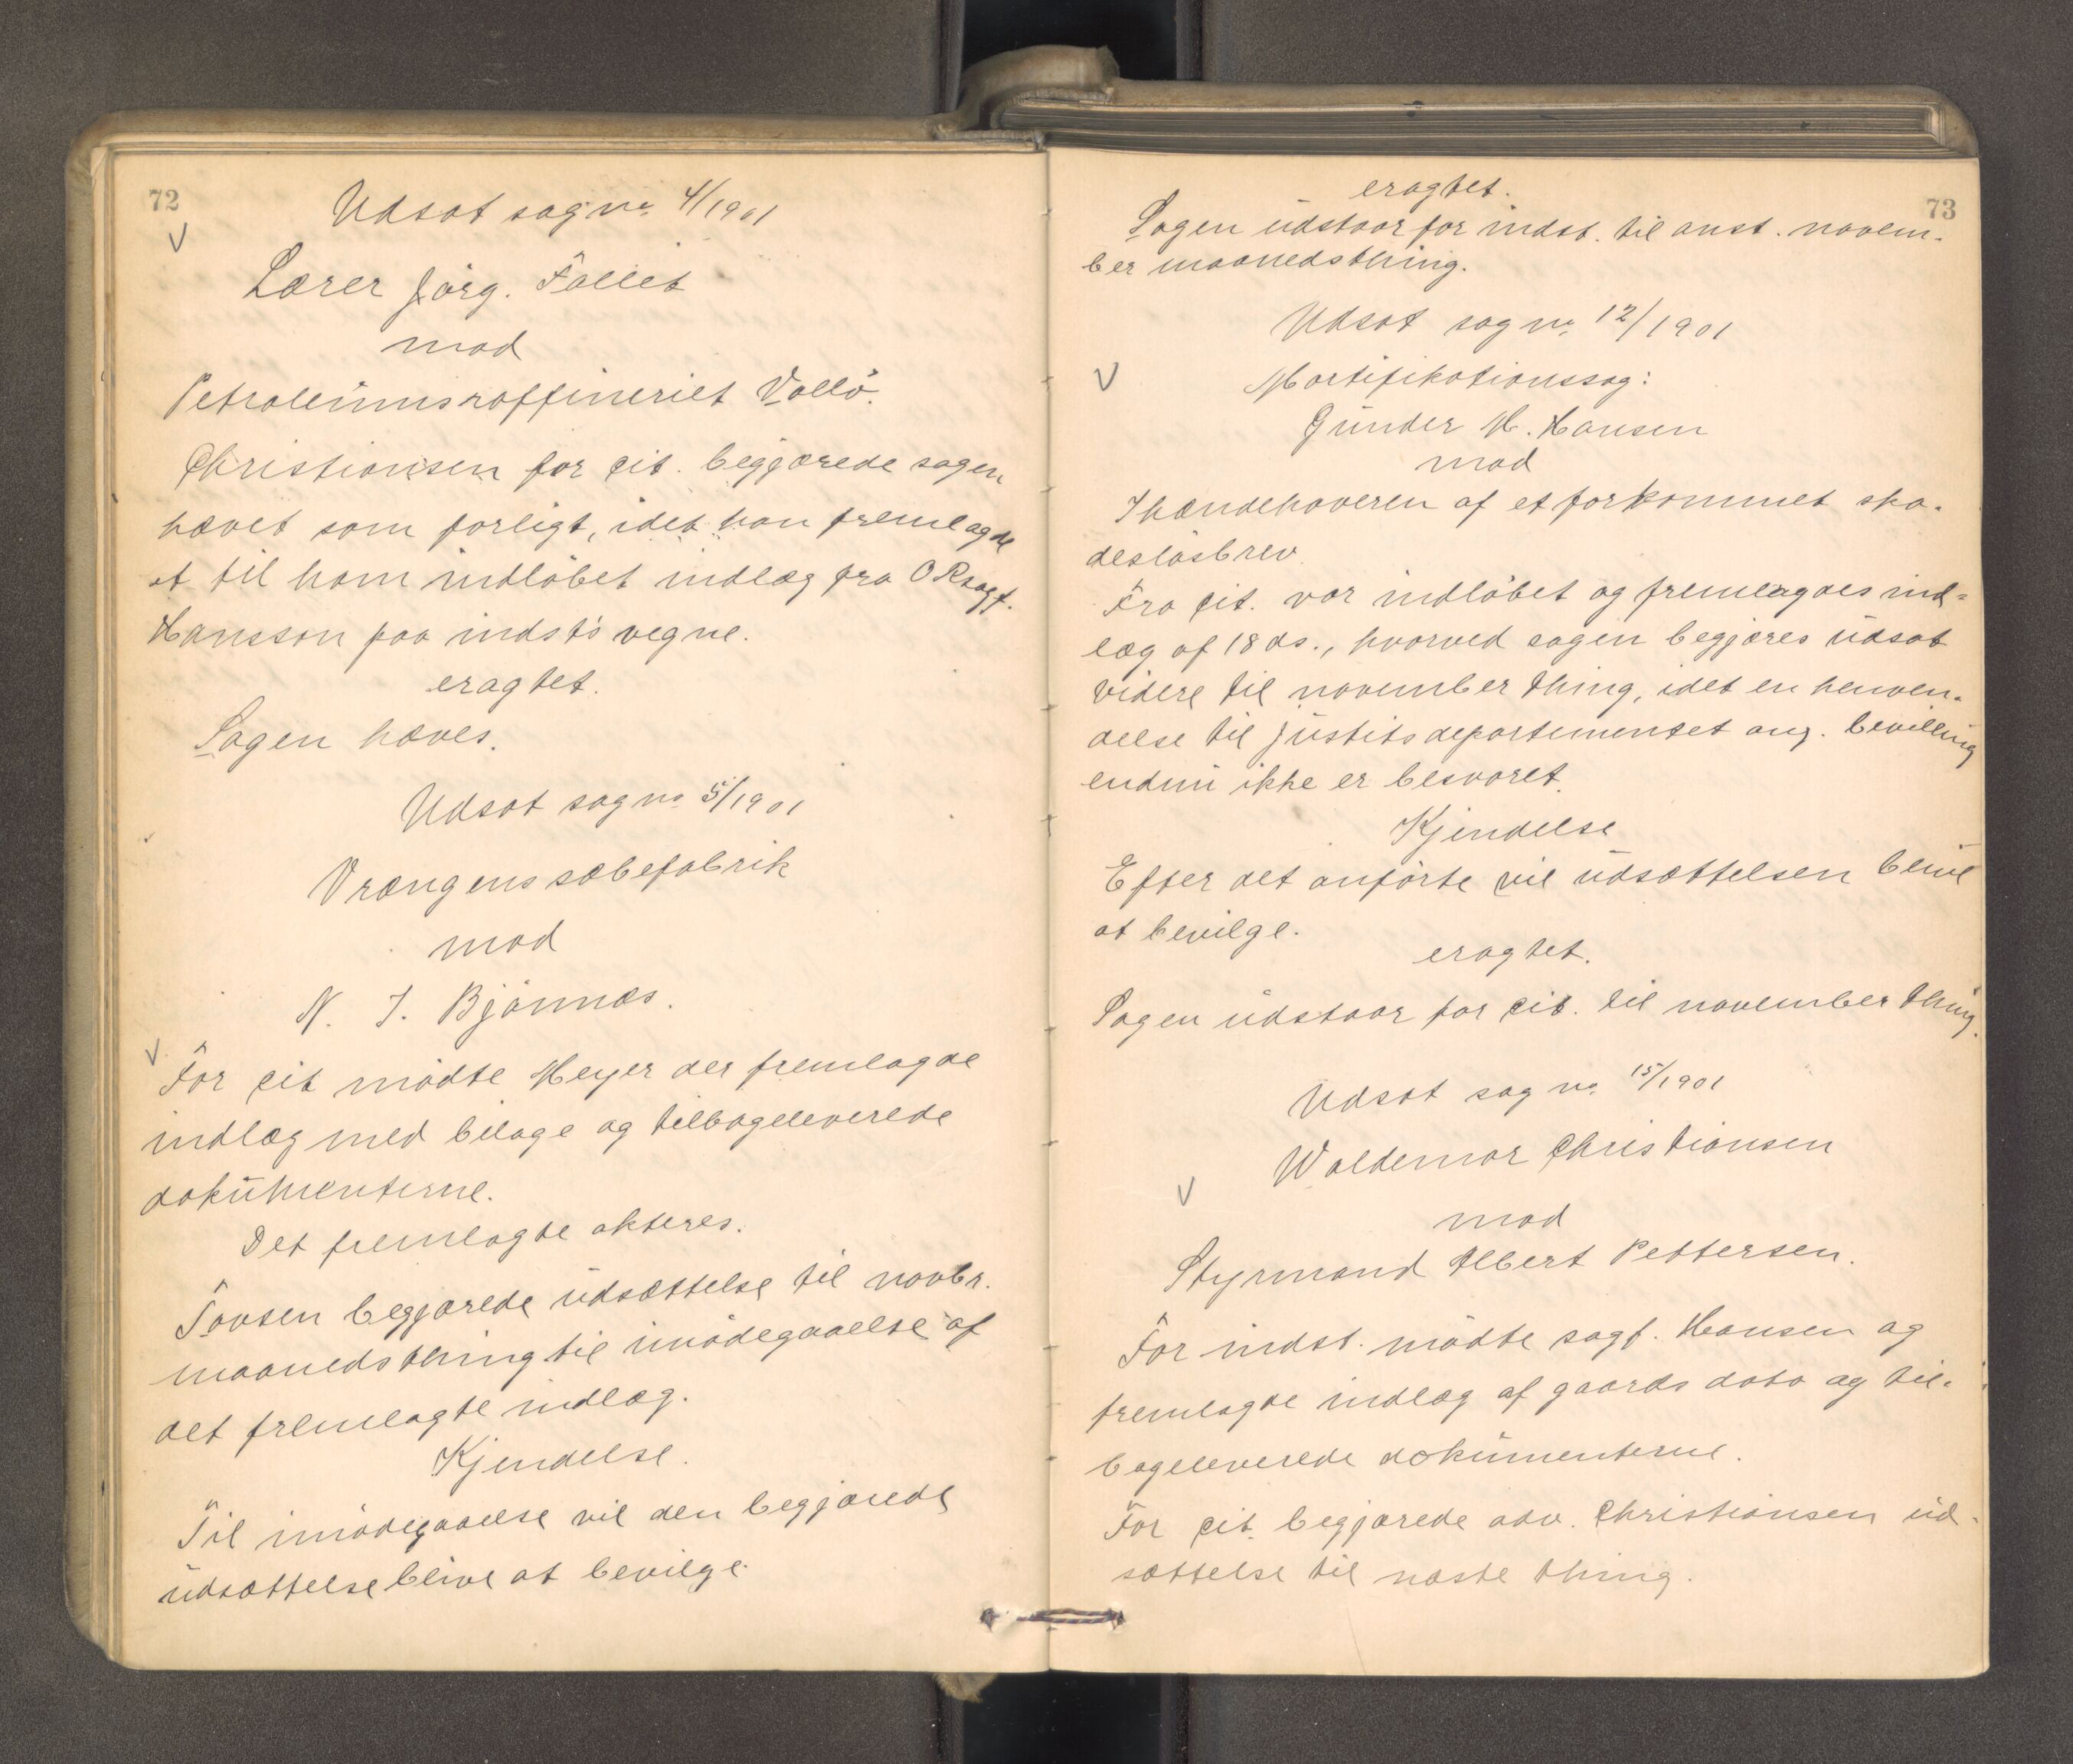 72
Udsat sag no 4/1901
V
Lærer Jørg. Follit
mod
Petroleumsraffineriet Vallö.
Christiansen for cit. begjærede sagen
hævet som forligt, idet han fremlagde
et til ham indløbet indlæg fra ORsagf.
Hansson paa indst's vegne.
eragtet.
Sagen hæves.
Udsat sag no 5/1901
Vrængens sæbefabrik
mod
N. J. Bjönnæs.
V
For cit mödte Meyer der fremlagde
indlæg med bilage og tilbageleverede
dokumenterne.
Det fremlagte akteres.
Tovsen begjærede udsættelse til novbr.
maanedsthing til imödegaaelse af
det fremlagte indlæg.
Kjendelse.
Til imödegaaelse vil den begjærede
udsættelse blive at bevilge.
73
eragtet.
Sagen udstaar for indst. til anst. novem-
ber maanedsthing.
Udsat sag no 12/1901
V
Mortifikationssag:
Gunder M. Hansen
mod
Ihændehaveren af et forkommet ska-
deslösbrev.
Fra cit. var indlöbet og fremlagdes ind-
læg af 18 ds., hvorved sagen begjæres udsat
videre til november thing, idet en henven-
delse til justitsdepartementet ang. bevilling
endnu ikke er besvaret.
Kjendelse
Efter det anförte vil udsættelsen blive
at bevilge.
eragtet.
Sagen udstaar for cit. til november thing.
Udsat sag no. 15/1901
Waldemar Christiansen
V
mod
Styrmand Albert Pettersen.
For indst. mödte sagf. Hansen og
fremlagde indlæg af gaards dato og til-
bageleverede dokumenterne.
For cit. begjærede adv. Christiansen ud-
sættelse til næste thing.